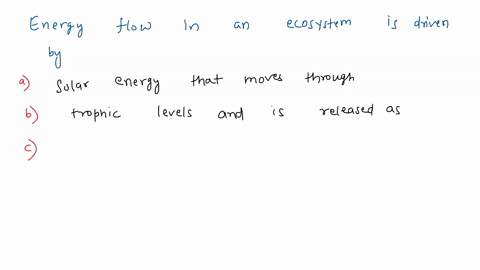 Energy flow in an ecosystem is driven
by
a) Solar energy that moves through
b) trophic levels and is released as
c)